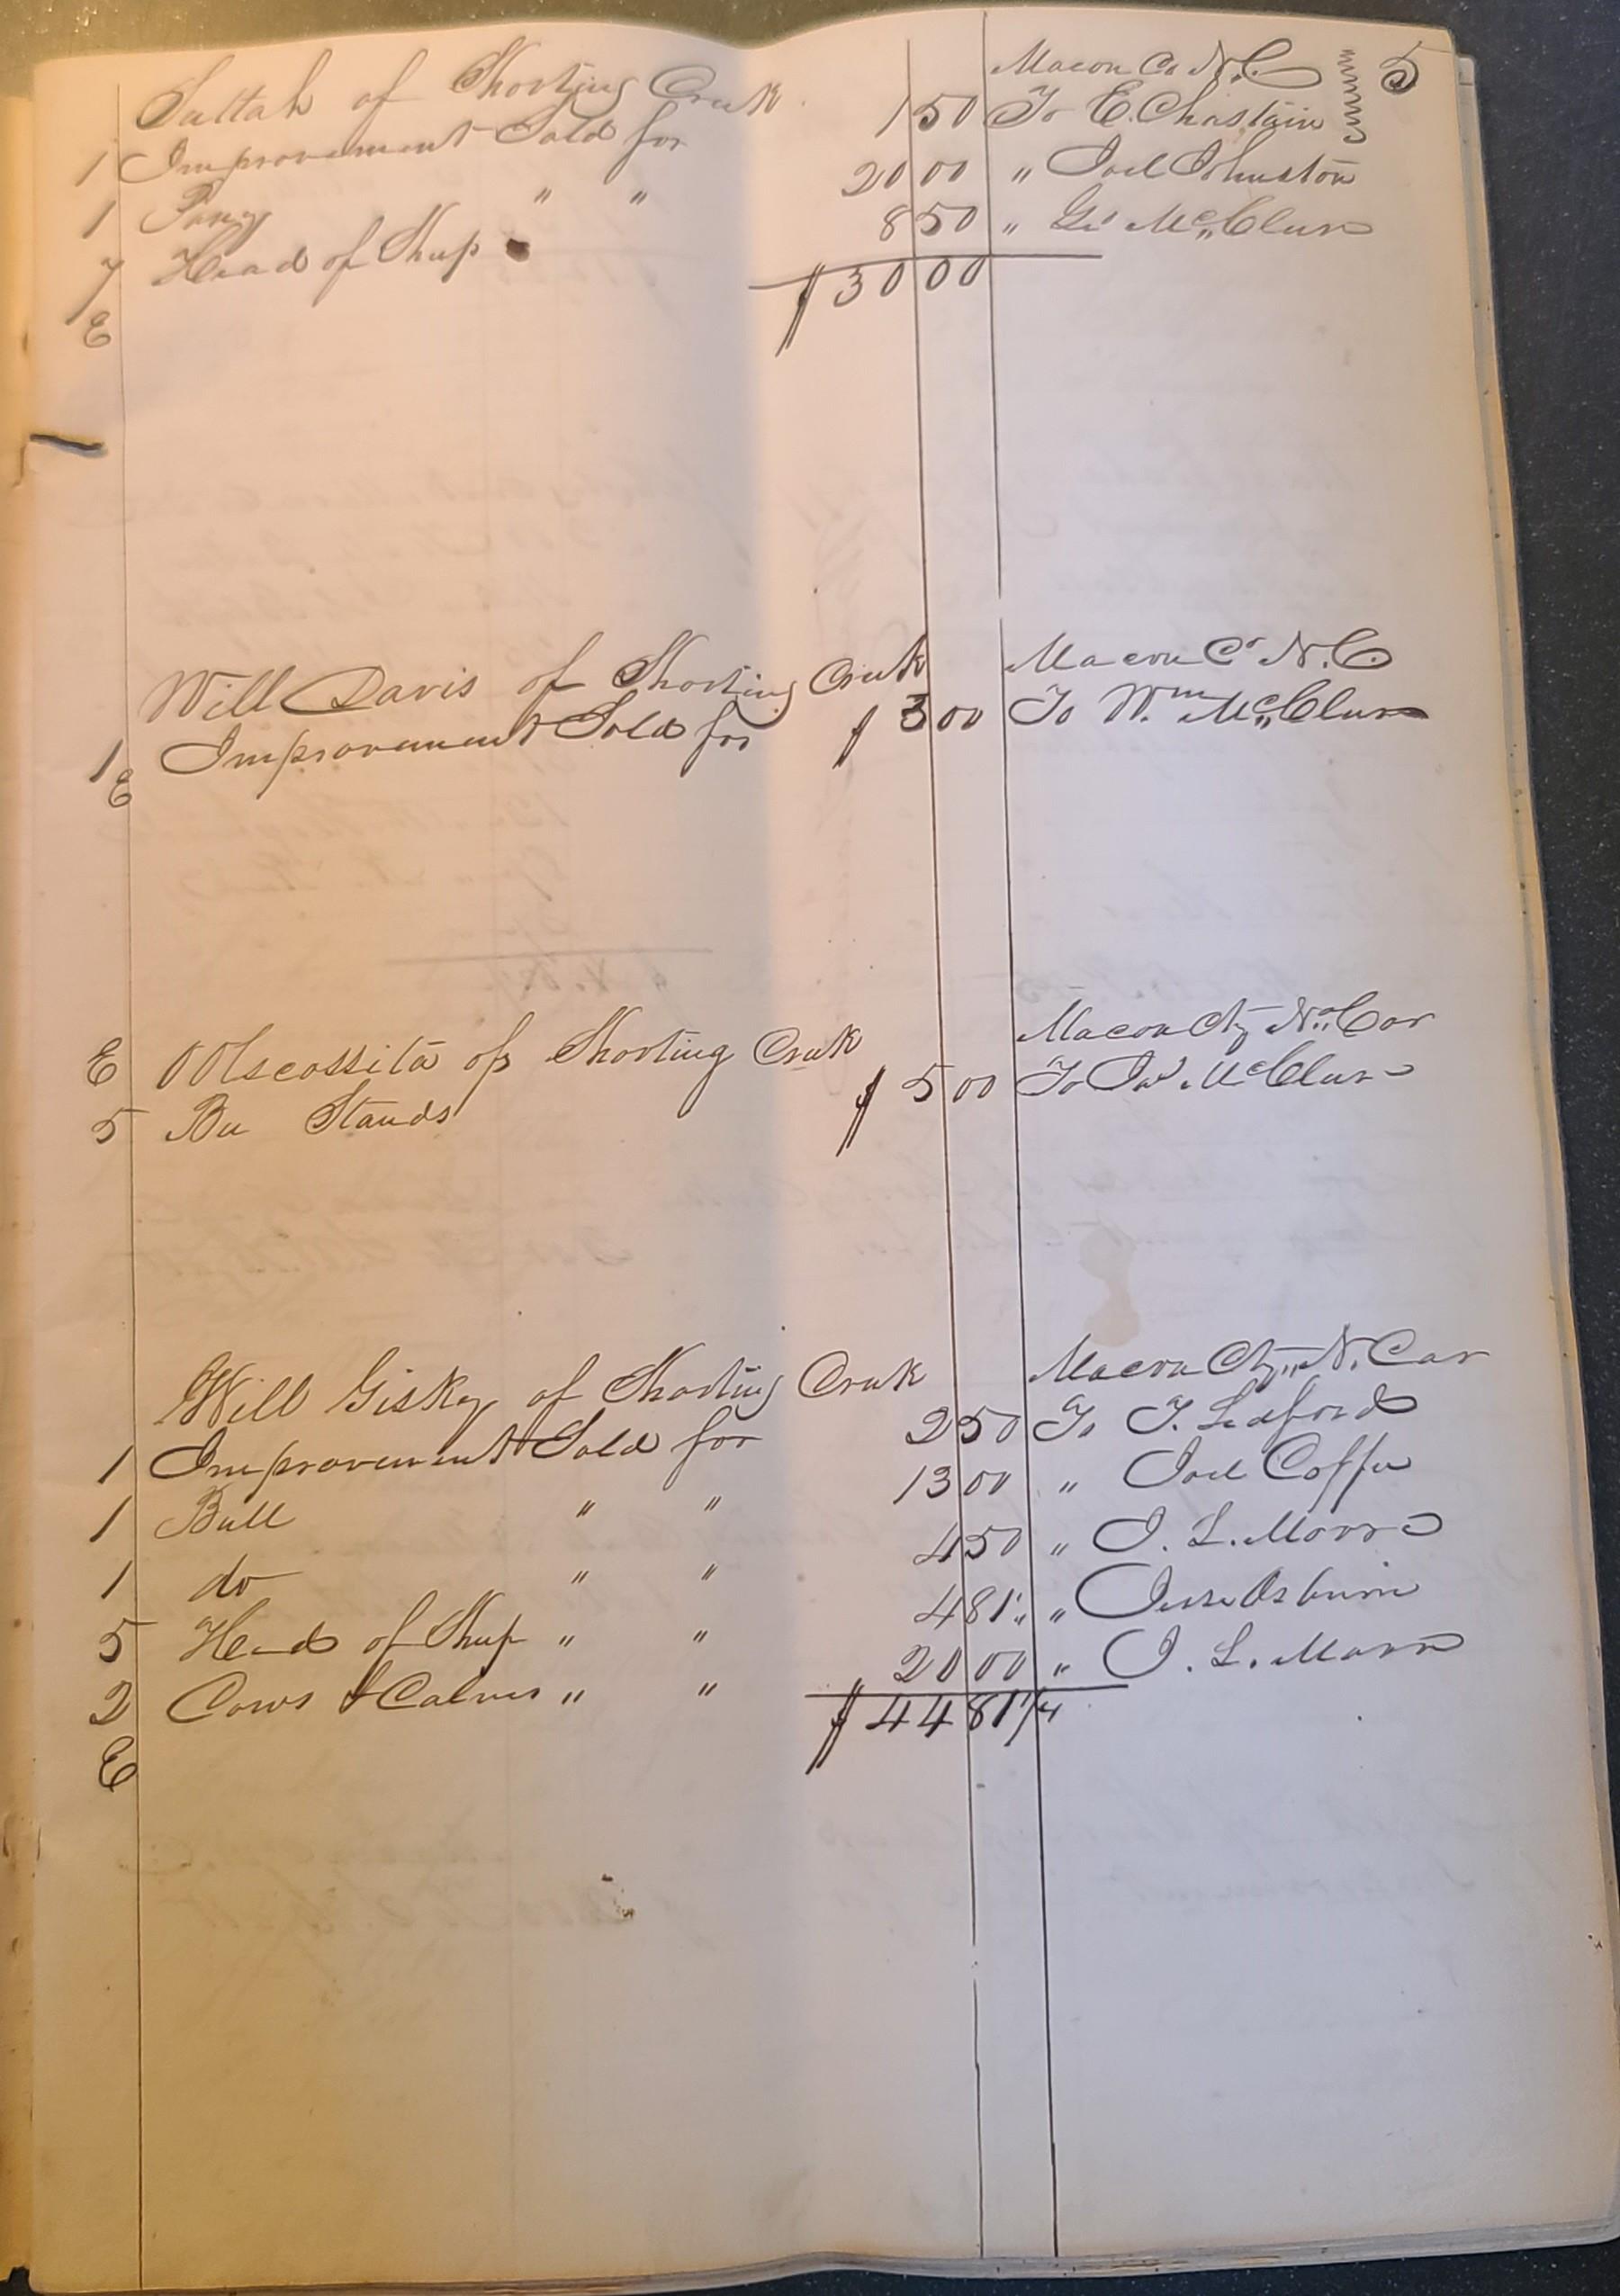 Suttah of Shooting Creek Macon Co N.C. 5
1 Improvement Sold for 1 50 To E. Chastain
1 Pony " " 20 00 " Joel Johnston
7 Head of Sheep 8 50 " Geo McClure
E $30 00
Will Davis of Shooting Creek Macon Co N.C.
1 Improvement Sold for $3 00 To Wm McClure
E
E of Shooting Creek Macon Cty No. Car
5 Bee Stands $5 00 To McClure
Will Giskey of Shooting Creek Macon Cty N. Car
1 Improvement Sold for 2 50 To T. Ledford
1 Bull " " 13 00 " Joel Coffee
1 do " " 4 50 " J. L. Moore
5 Head of Sheep " " 4 81 " Jesse Osburn
2 Cows & Calves " " 20 00 " J. L. Moore
E $44 81 1/4